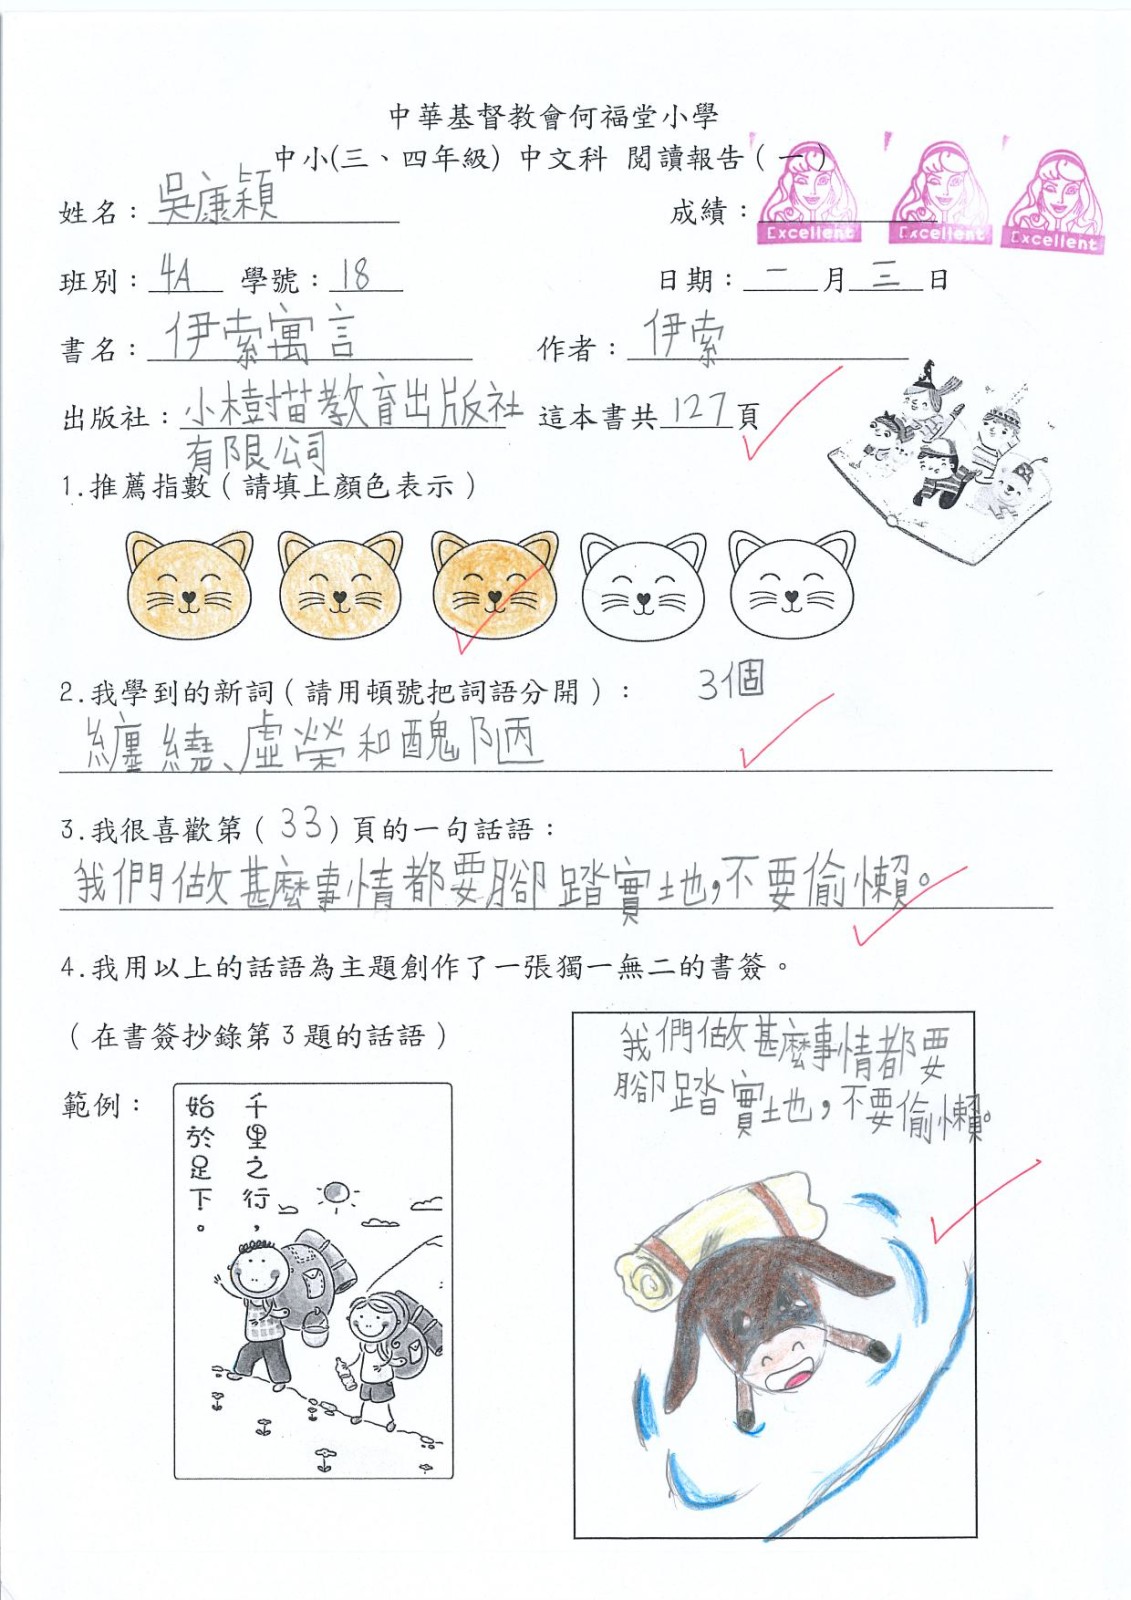 中華基督教會何福堂小學
中小(三、四年級) 中文科 閱讀報告(一)
姓名：吳康穎 成績：
Excellent Excellent Excellent
班別：4A 學號：18 日期：一月三日
書名：伊索寓言 作者：伊索
出版社：小樹苗教育出版社 這本書共127頁
有限公司
1.推薦指數(請填上顏色表示)
2.我學到的新詞(請用頓號把詞語分開)： 3個
纏繞、虛榮和醜陋
3.我很喜歡第(33)頁的一句話語：
我們做甚麼事情都要腳踏實地,不要偷懶。
4.我用以上的話語為主題創作了一張獨一無二的書簽。
(在書簽抄錄第3題的話語)
範例：
千里之行，
始於足下。
我們做甚麼事情都要
腳踏實地,不要偷懶。